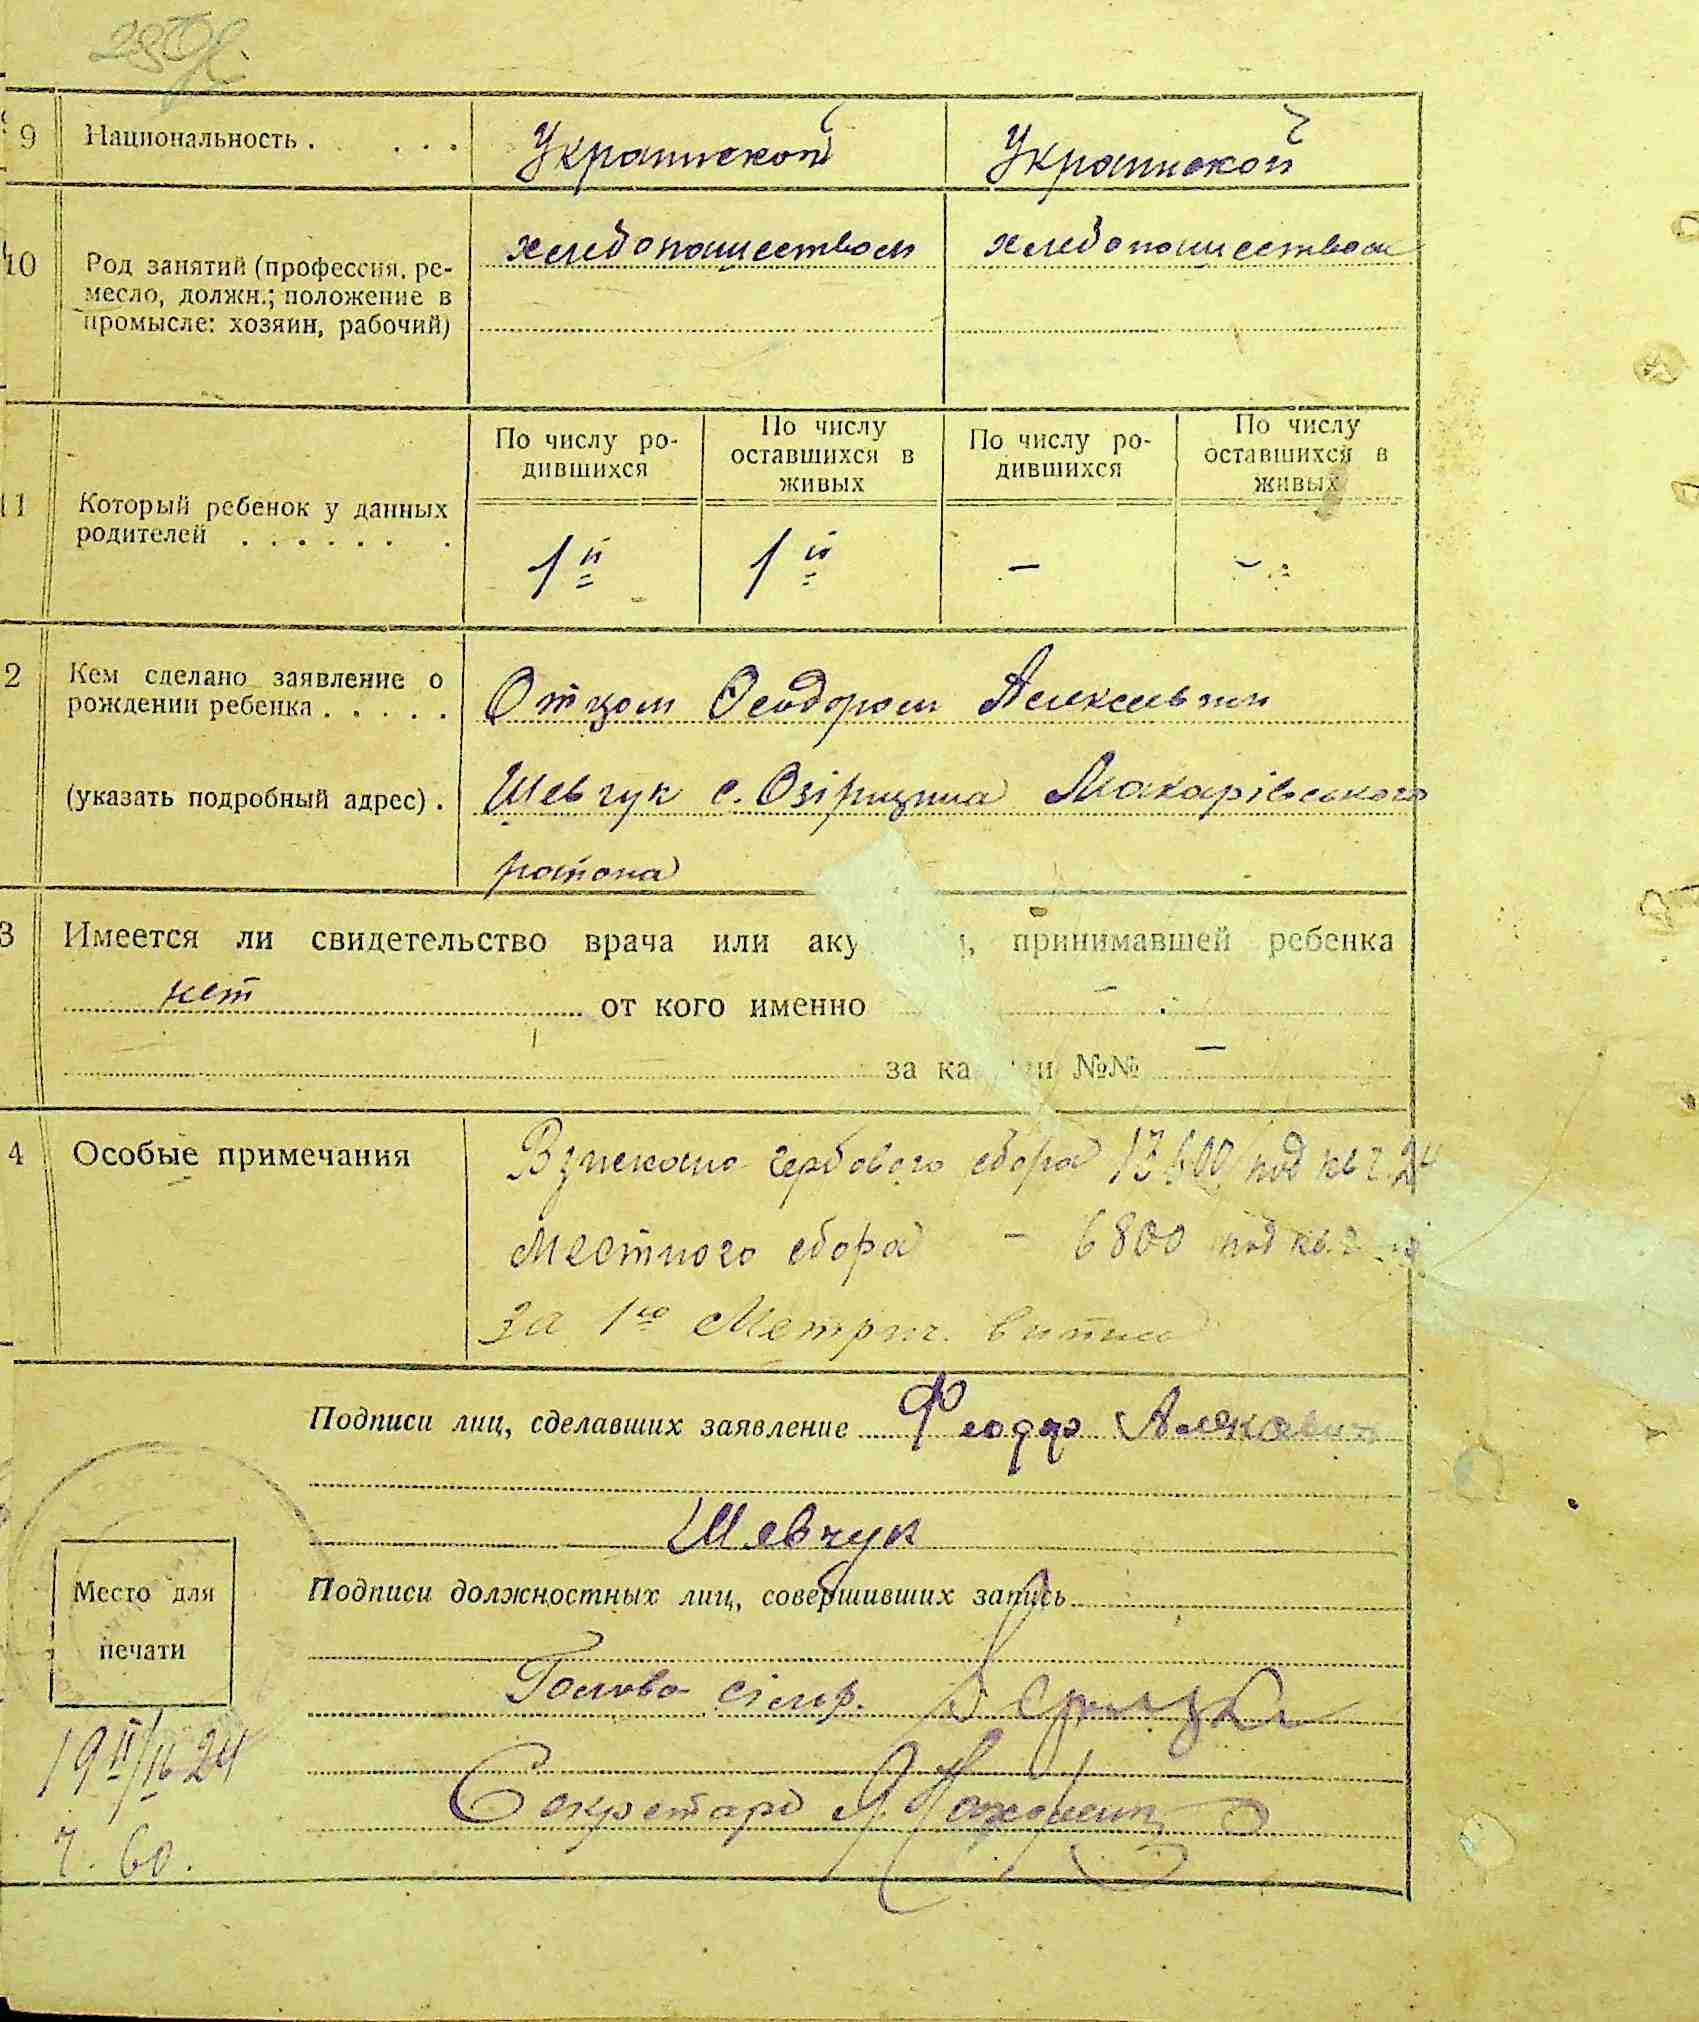 9 Национальность . . . . Украинской Украинской
10 Род занятий (профессия, ре-
месло, должн.; положение в
промысле: хозяин, рабочий)
хлебопашеством хлебопашеством
11 Который ребенок у данных
родителей . . . . . . .
По числу ро-
дившихся
По числу
оставшихся в
живых
По числу ро-
дившихся
По числу
оставшихся в
живых
1й 1й - -
2 Кем сделано заявление о
рождении ребенка . . . . .
Отцом Феодором Алексеевым
(указать подробный адрес) . Шевчук с. Озірщина Макарівського
района
3 Имеется ли свидетельство врача или аку принимавшей ребенка
нет от кого именно -
за ка ии №№ -
4 Особые примечания
Взыскано гербового сбора 13600 под кв ч. 24
Местного сбора - 6800 под кв. ч.
за 1ю Метрич.
Подписи лиц, сделавших заявление Феодор
Шевчук
Подписи должностных лиц, совершивших запись
Место для
печати
Голова сільр.
Секретарь
24
ч. 60.